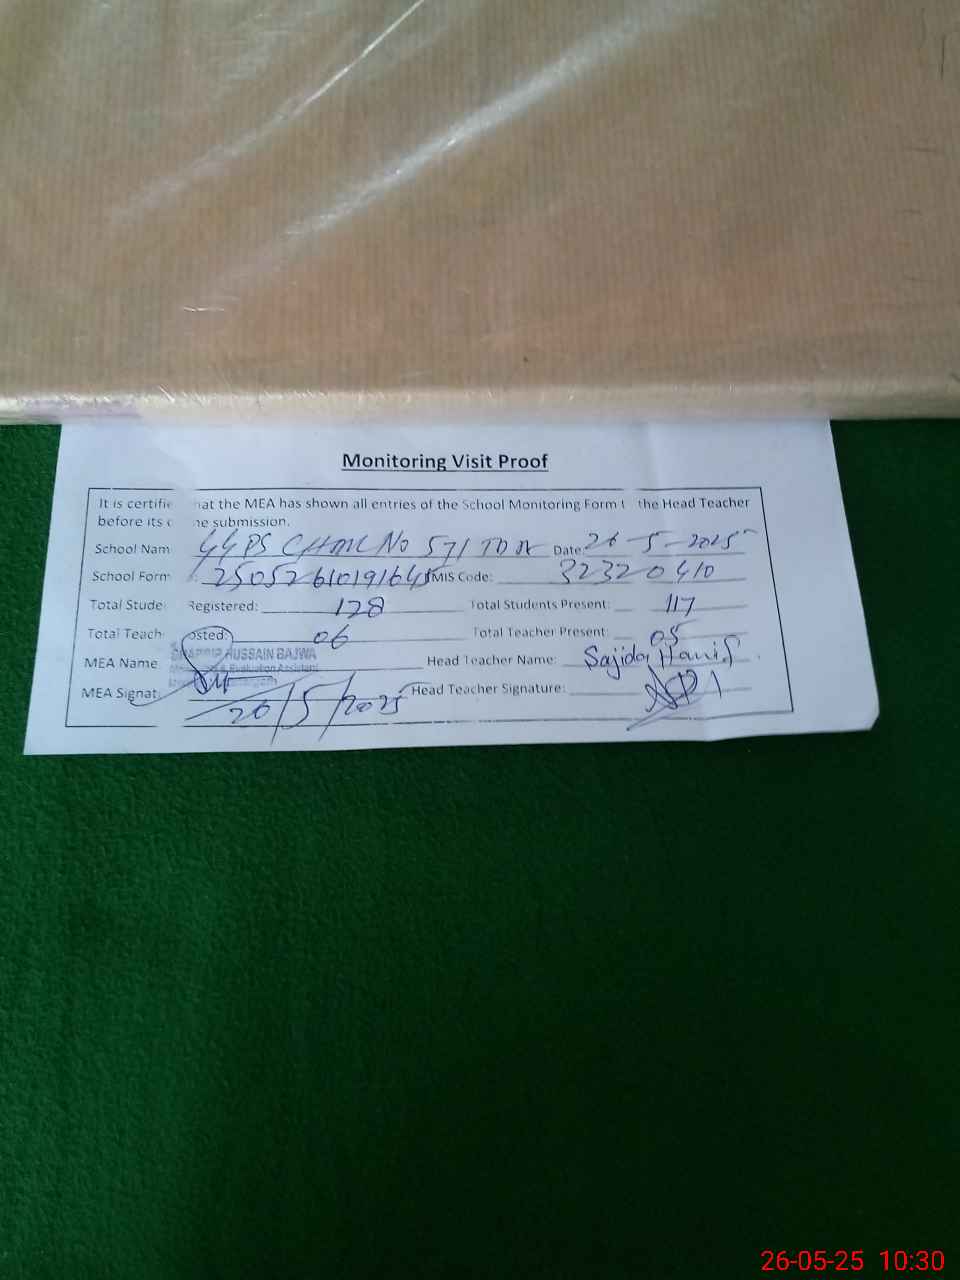 Monitoring Visit Proof
It is certifie hat the MEA has shown all entries of the School Monitoring Form t the Head Teacher
before its o ne submission.
School Nam GGPS CHAK No 571 TDA Date: 26-5-2025
School Form 2505261019164 EMIS Code: 32320410
Total Stude Registered: 128 Total Students Present: 117
Total Teach osted: 06 Total Teacher Present: 05
MEA Name HUSSAIN BAJWA Head Teacher Name: Sajida Hanif
& Evaluation Assistant
MEA Signat Head Teacher Signature:
26/5/2025
26-05-25 10:30